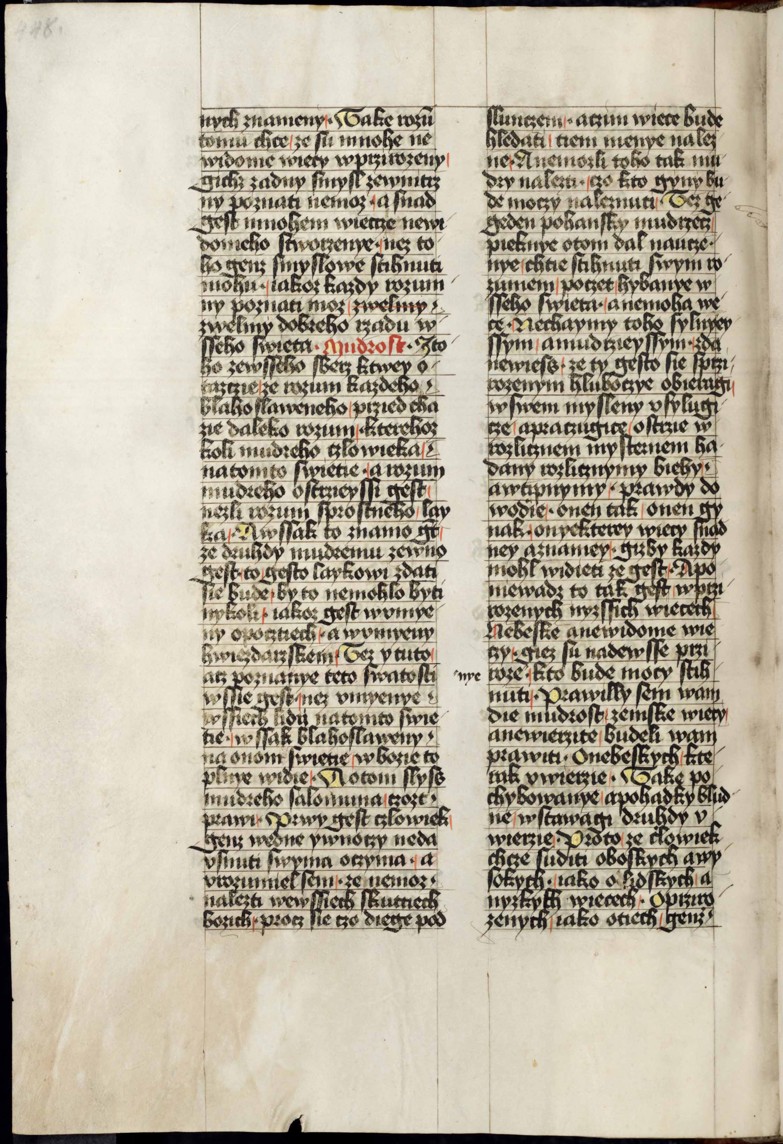 448.
nych znameny · Take rozu
tomu chce / ze su mnohe ne
widome wiecy wprzirozeny
gichz zadny smysl zewnitrz
ny poznati nemoz · a snad
gest mnohem wietcze newi
domeho stworzenye · nez to
ho genz smyslowe stihnuti
mohu · iakoz kazdy rozum
ny poznati moz / zwelmy /
zwelmy dobreho rzadu w
sseho swieta · Mudrost · Zto
ho zewsseho sberz ktwey o
tazcze / ze rozum kazdeho /
blahoslaweneho / przied cha
zie daleko rozum · kterehoz
koli mudreho czlowieka /
natomto swietie · a rozum
mudreho ostrzeyssi gest
nezli rozum sprostneho / lay
ka · Awssak to znamo ge
ze druhdy mudremu zewno
gest · to / gesto laykowi zdati
sie bude / by to nemohlo byti
nykoli · iakoz gest wumye
ny opocztiech · a wumyeny
hwiezdarzskem / Tez y tuto
acz poznanye teto swatosti
wssie gest · nez vmyenye /
wssiech lidu natomto swie
tie · wssak blahoslaweny ·
na onom swietie / wbozie to
plnye widie · A otom slyss
mudreho salomuna / czozt ·
prawi · Prwy gest czlowiek
genz wedne ywnoczy neda
vsnuti swyma oczyma · a
vrozumiel sem · ze nemoz ·
nalezti wewssiech skutciech
bozich · procz sie czo diege pod
slunczem · aczim wiece bude
hledati / tiem menye nalez
ne · A nemozli toho tak mu
dry nalezti · czo kto gyny bu
de moczy naleznuti · Tez ge
geden pohansky mudrzecz
pieknye otom dal naucze ·
nye / chtie stihnuti swym ro
zumem / poczet hybanye w
sseho swieta · a nemoha we
ce · Nechaymy toho sylnyey
ssym / a mudrzieyssym · zda
newiess · ze ty gesto sie sprzi
rozenym hluboczye obieragi
wswem mysleny vsylugi
cze / apraczugice / ostrzie w
rozlicznem mysternem ha
dany rozlicznymy biehy ·
awtipnymy · prawdy do
wodie · onen tak / onen gy
nak · onyekterey wiecy snad
ney aznamey · gizby kazdy
mohl widieti ze gest · Apo
niewadz to tak gest wprzi
rozenych nyzssich wiecech
Nebeske anewidome wie
czy · giez su nadewsse przi
roze · kto bude mocy stih
nye
nuti · Prawilly sem wam
die mudrost / zemske wiecy
anewierzite / budeli wam
prawiti · Onebeskych / kte
rak vwierzie · Take po
chybowanye / apohadky blud
ne / wstawagi druhdy v
wierzie · Proto ze clowiek
chcze suditi oboskych awy
sokych · iako o lidskych a
nyzkych wiecech · Oprziro
zenych iako otiech / genz ·